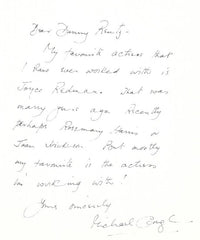 Dear Tommy Pruty -
My favourite actress that
I have ever worked with is
Joyce Redman. That was
many years ago. Recently
perhaps Rosemary Harris or
Joan. But mostly
my favourite is the actress
I'm working with!
Yours sincerely
Michael